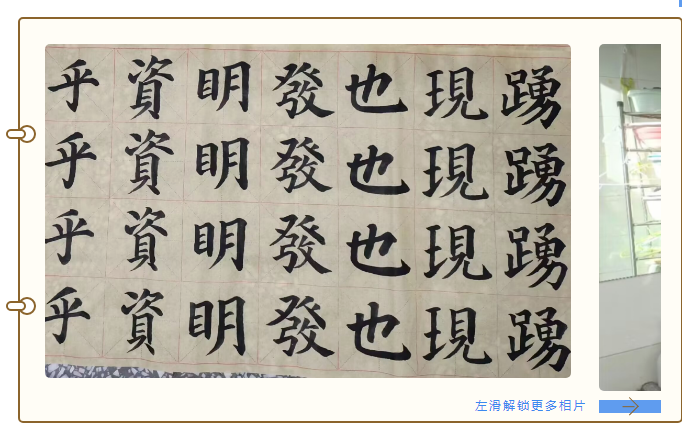 踴踴踴踴
現現現現
也也也也
發發發發
明明明明
資資資資
乎乎乎乎
左滑解锁更多相片